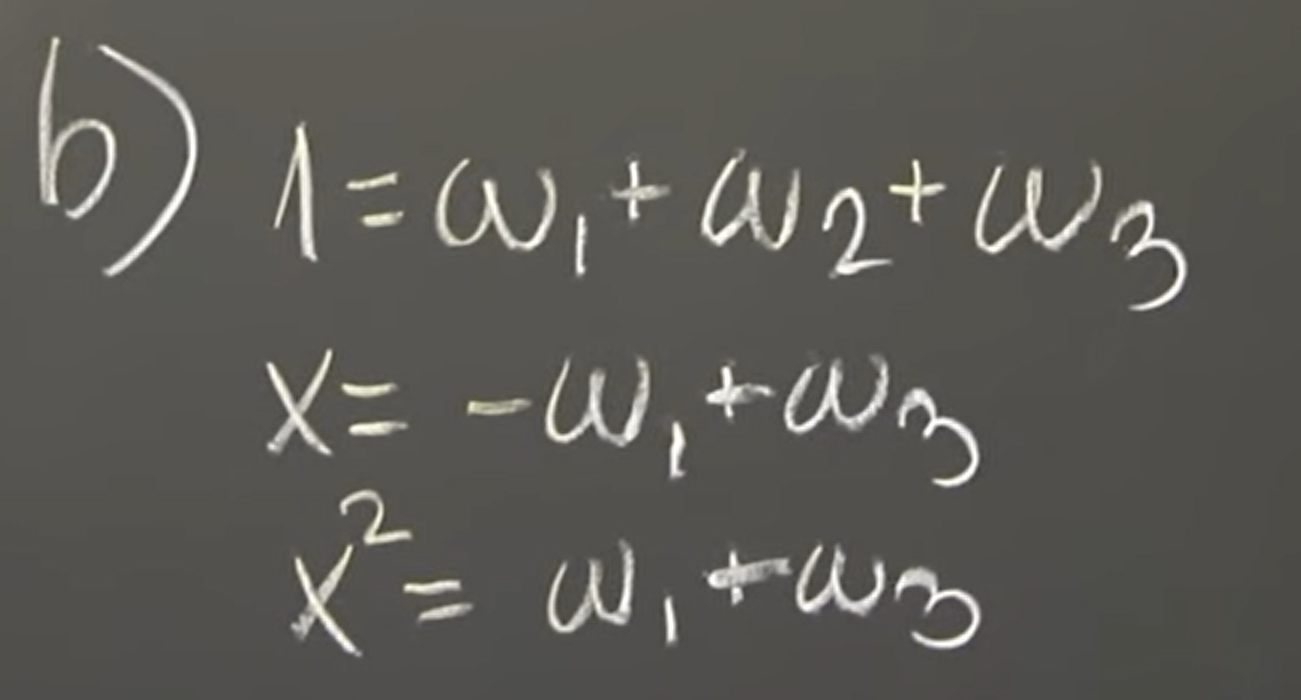 b) 1 = ω₁ + ω₂ + ω₃
x = -ω₁ + ω₃
x² = ω₁ + ω₃